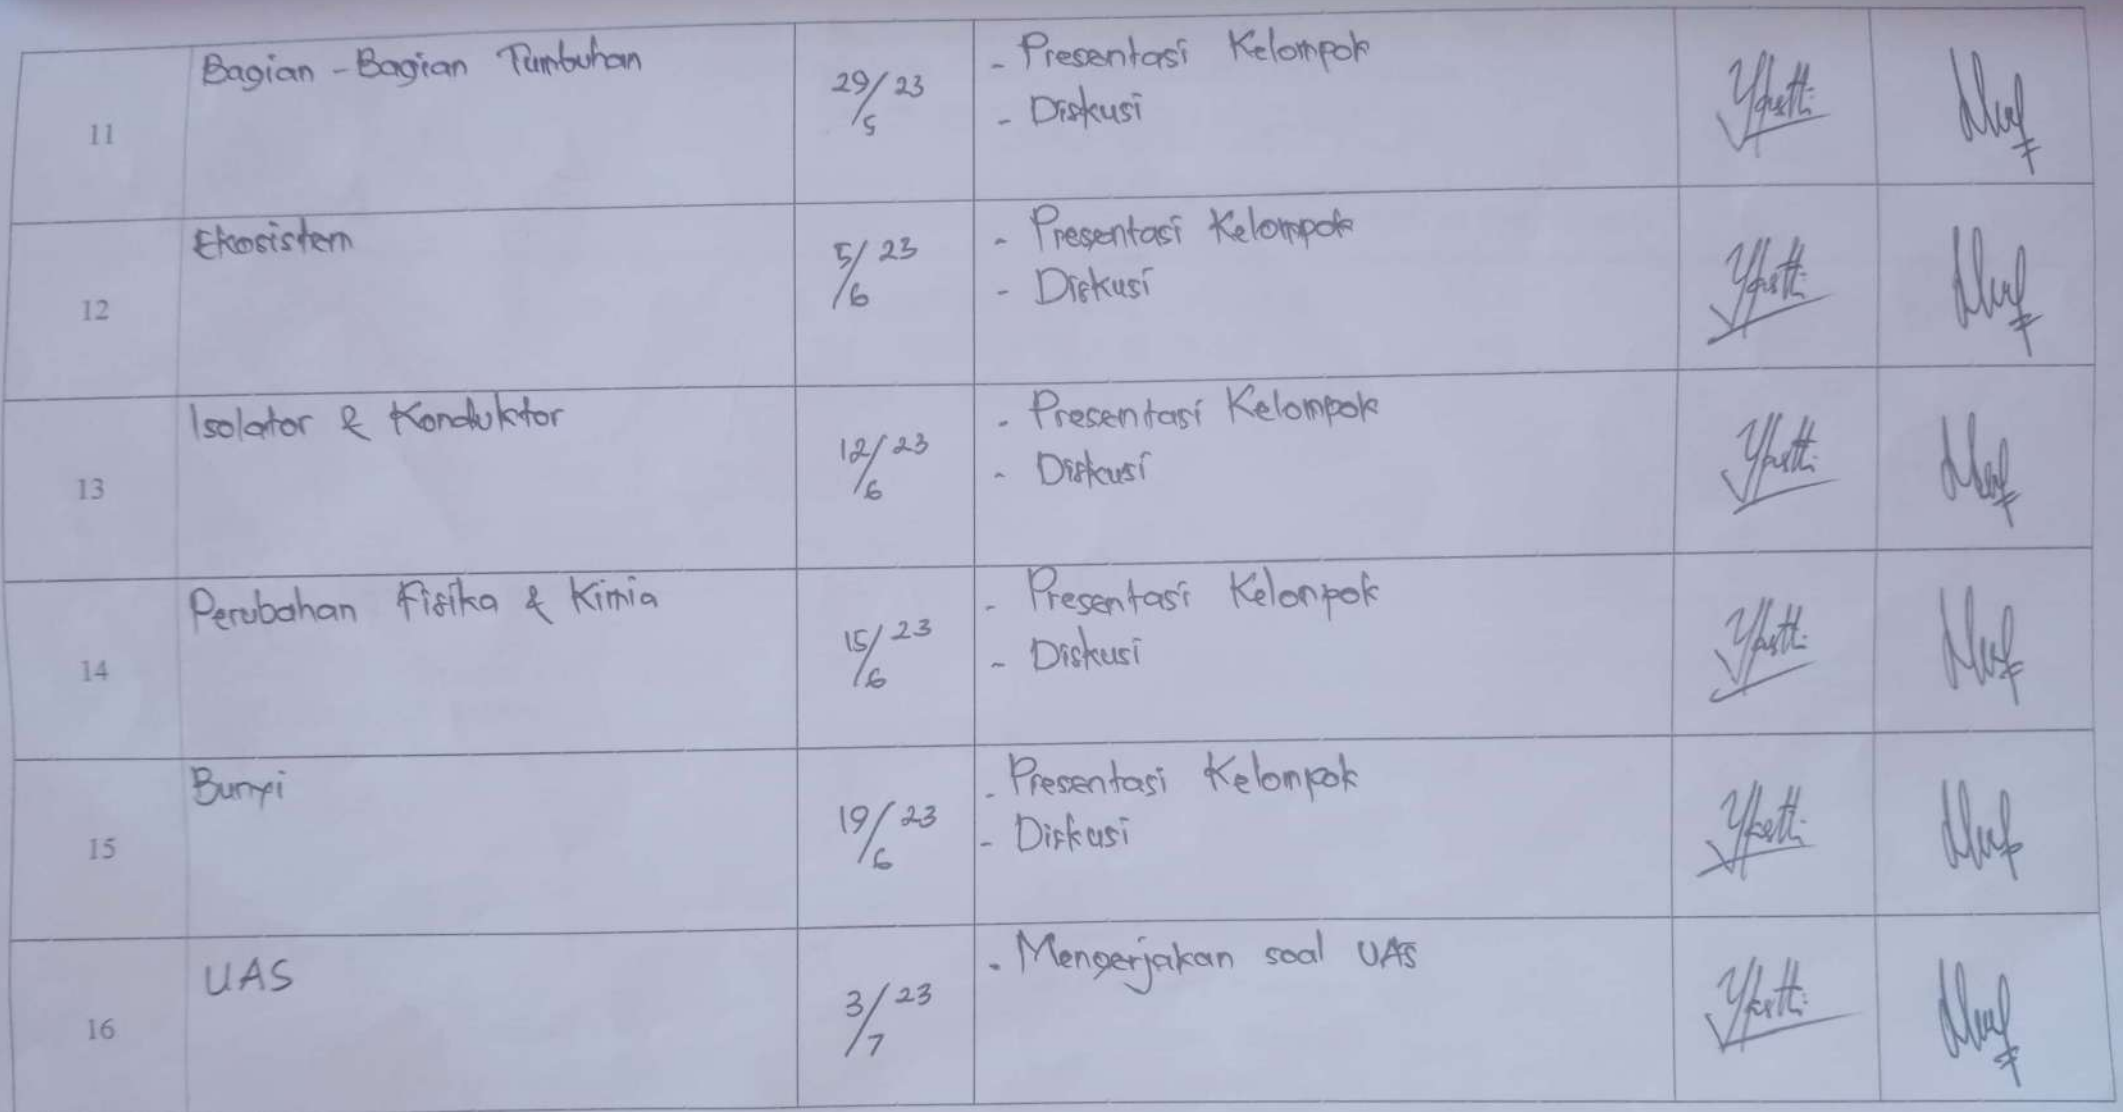 11
Bagian - Bagian Tumbuhan
29/5 23
- Presentasi Kelompok
- Diskusi
12
Ekosistem
5/6 23
- Presentasi Kelompok
- Diskusi
13
Isolator & Konduktor
12/6 23
- Presentasi Kelompok
- Diskusi
14
Perubahan Fisika & Kimia
15/6 23
- Presentasi Kelompok
- Diskusi
15
Bunyi
19/6 23
- Presentasi Kelompok
- Diskusi
16
UAS
3/7 23
- Mengerjakan soal UAS